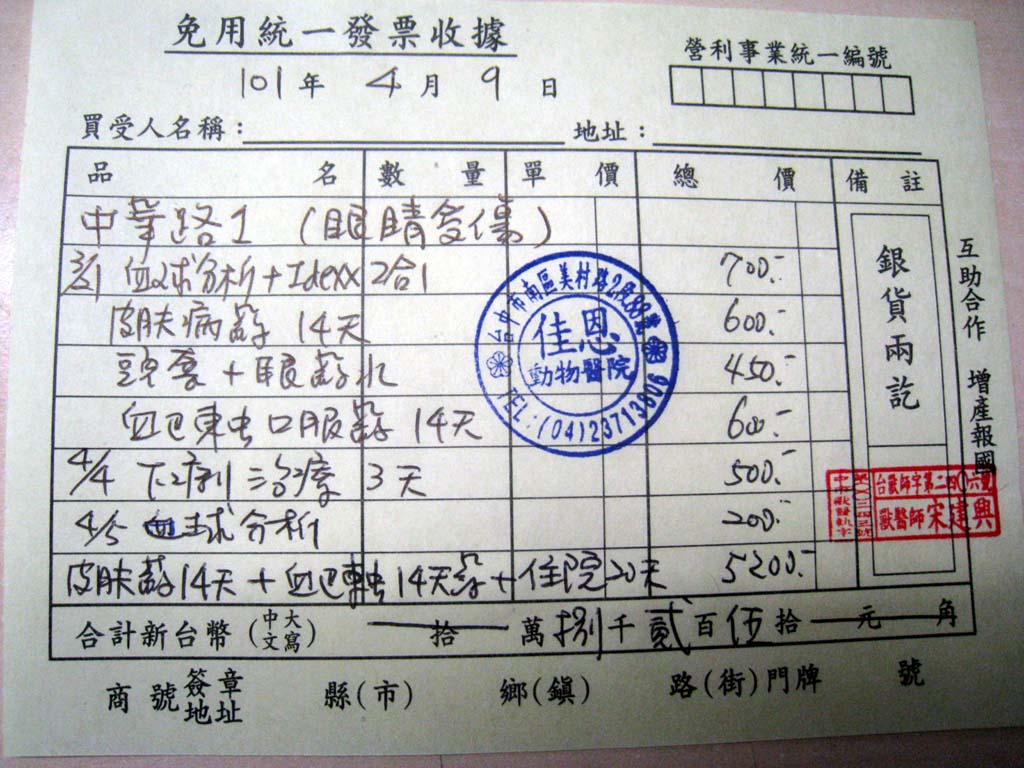 免用統一發票收據
營利事業統一編號
101年 4月 9日
買受人名稱： 地址：
品名 數量 單價 總價 備註
中華路1 (眼睛受傷)
3/31 血球分析+Idexx 2合1 700.-
皮膚病葯 14天 600.-
頭套+眼葯水 450.-
血巴東虫口服葯 14天 600.-
4/4 下痢治療 3天 500.-
4/5 血球分析 200.-
皮膚葯14天+血巴東虫14天葯+住院20天 5200.-
合計新台幣(中文大寫) 拾萬捌千貳百伍拾元角
商號簽章地址 縣(市) 鄉(鎮) 路(街)門牌 號
銀貨兩訖
互助合作 增產報國
台中市南區美村路2段88號
佳恩
動物醫院
TEL:(04)23713606
獸醫師宋建興